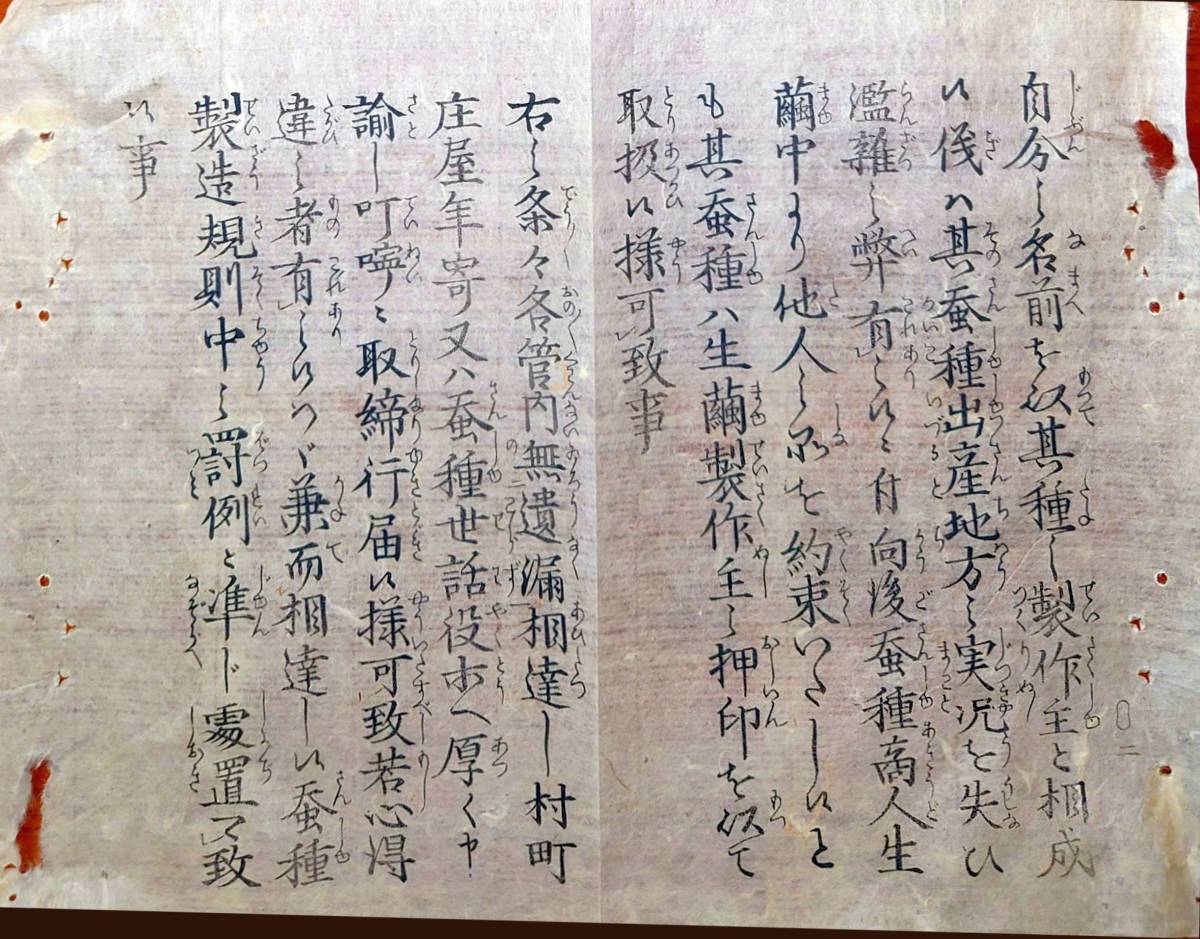 自分之名前を以其種之製作主と相成
候儀ハ其蚕種出産地方之実況を失ひ
濫雑之弊有之候ニ付向後蚕種商人生
繭中より他人之品を約束いたし候と
も其蚕種ハ生繭製作主之押印を以て
取扱候様可致事
右之条々各管内無遺漏相達し村町
庄屋年寄又ハ蚕種世話役等へ厚く申
諭し叮嚀ニ取締行届候様可致若心得
違之者有之候ハヾ兼而相達し候蚕種
製造規則中之罰例ニ準じ處置可致
候事